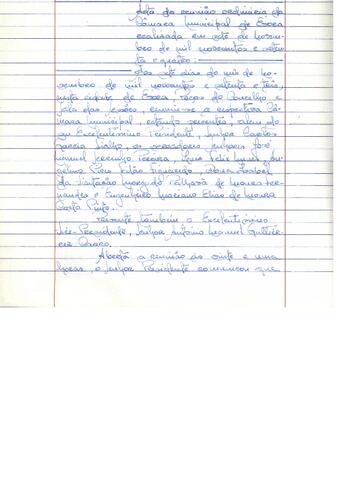 Acta da reunião ordinária da
Câmara Municipal de Évora
realizada em sete de Novem-
bro de mil novecentos e seten-
ta e quatro:
Aos sete dias do mês de No-
vembro de mil novecentos e setenta e três,
nesta cidade de Évora, Paços do Concelho e
Sala das sessões, reuniu-se a respectiva Câ-
mara Municipal, estando presentes, além do
seu Excelentíssimo Presidente, Senhor
os vereadores senhores José
Manuel Pereira, Luis Félix
Pires Falcão Figueiredo, Maria Isabel
da Visitação de Moraes Fer-
nandes e Engenheiro Mariano Elias de Moura
Costa Pinto.
Presente também o Excelentíssimo
Vice-Presidente, Senhor António Manuel
Braço.
Aberta a reunião às vinte e uma
horas, o Senhor Presidente comunicou que